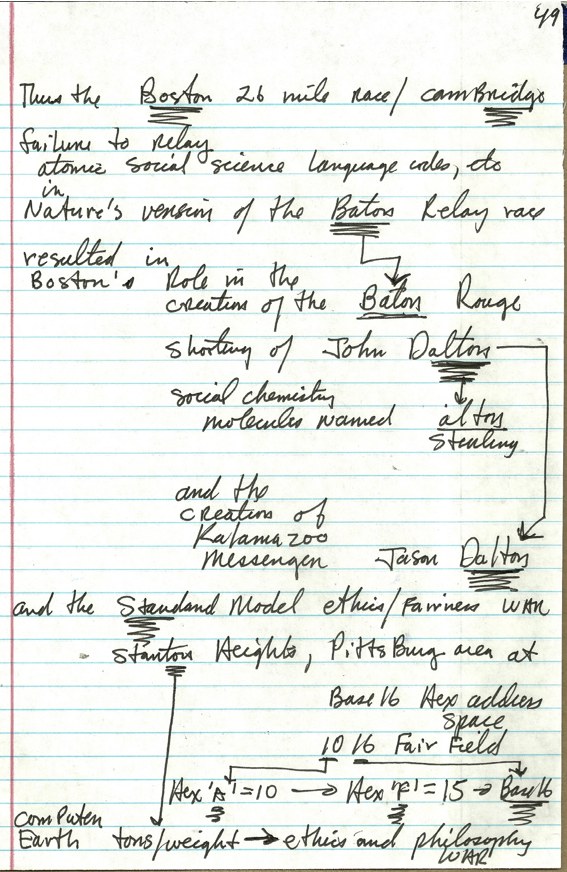 49
Thus the Boston 26 mile race/ camBridge
failure to relay
atomic social science language codes, etc
in
Nature's version of the Baton Relay race
resulted in
Boston's Role in the
creation of the Baton Rouge
shooting of John Dalton
social chemistry
molecules named alton
Sterling
and the
creation of
Kalamazoo
Messenger Jason Dalton
and the Standard Model ethics/Fairness WAR
Stanton Heights, PittsBurg area at
Base 16 Hex address
Space
10 16 Fair Field
Hex 'A' = 10 → Hex 'F' = 15 → Base 16
computer
Earth tons/weight → ethics and philosophy
WAR